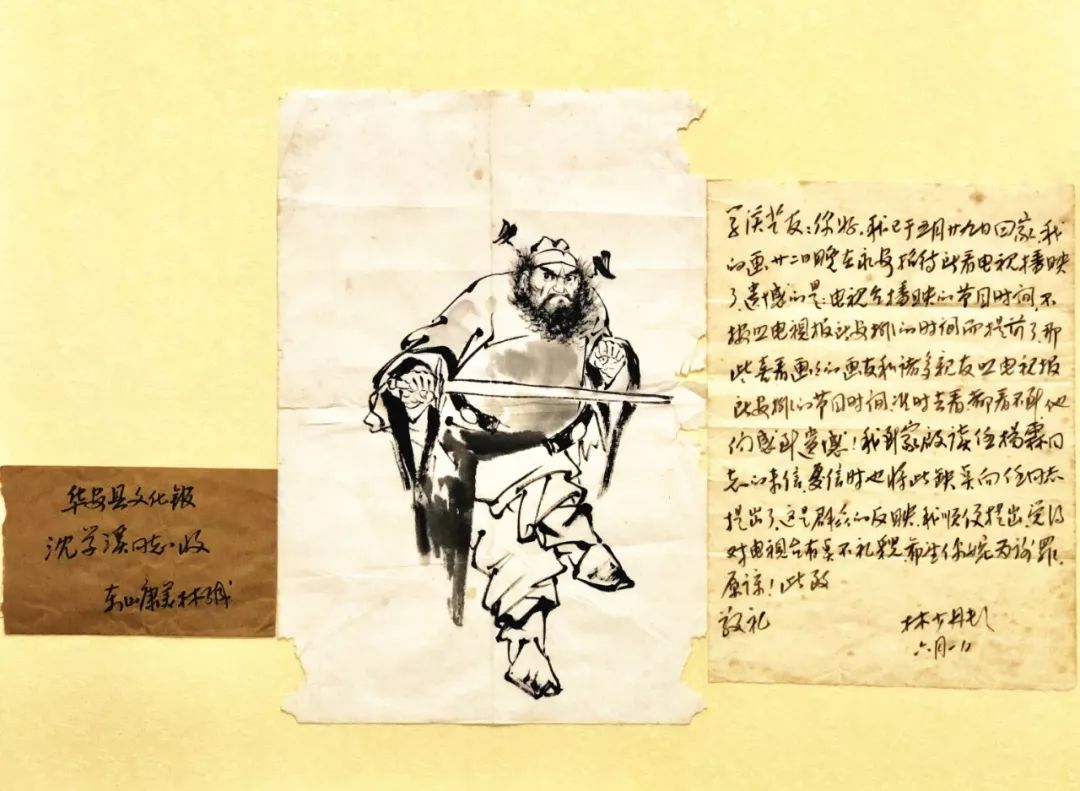 华安县文化馆
沈学溪同志收
东山康美林缄
学溪艺友：你好，我已于五月廿九日回家，我
的画廿二日晚在永安招待所看电视播映
了，遗憾的是：电视台播映的节目时间，不
按照电视报所安排的时间而提前了，那
些喜看画的画友和诸多亲友照电视报
所安排的节目时间准时去看都看不到，他
们感到遗憾！我到家后读任杨霖同
志的来信，复信时也将此缺点向任同志
提出了，这是群众的反映，我顺便提出，觉得
对电视台有真不礼貌，
原谅！此致
敬礼
林少丹
六月一日